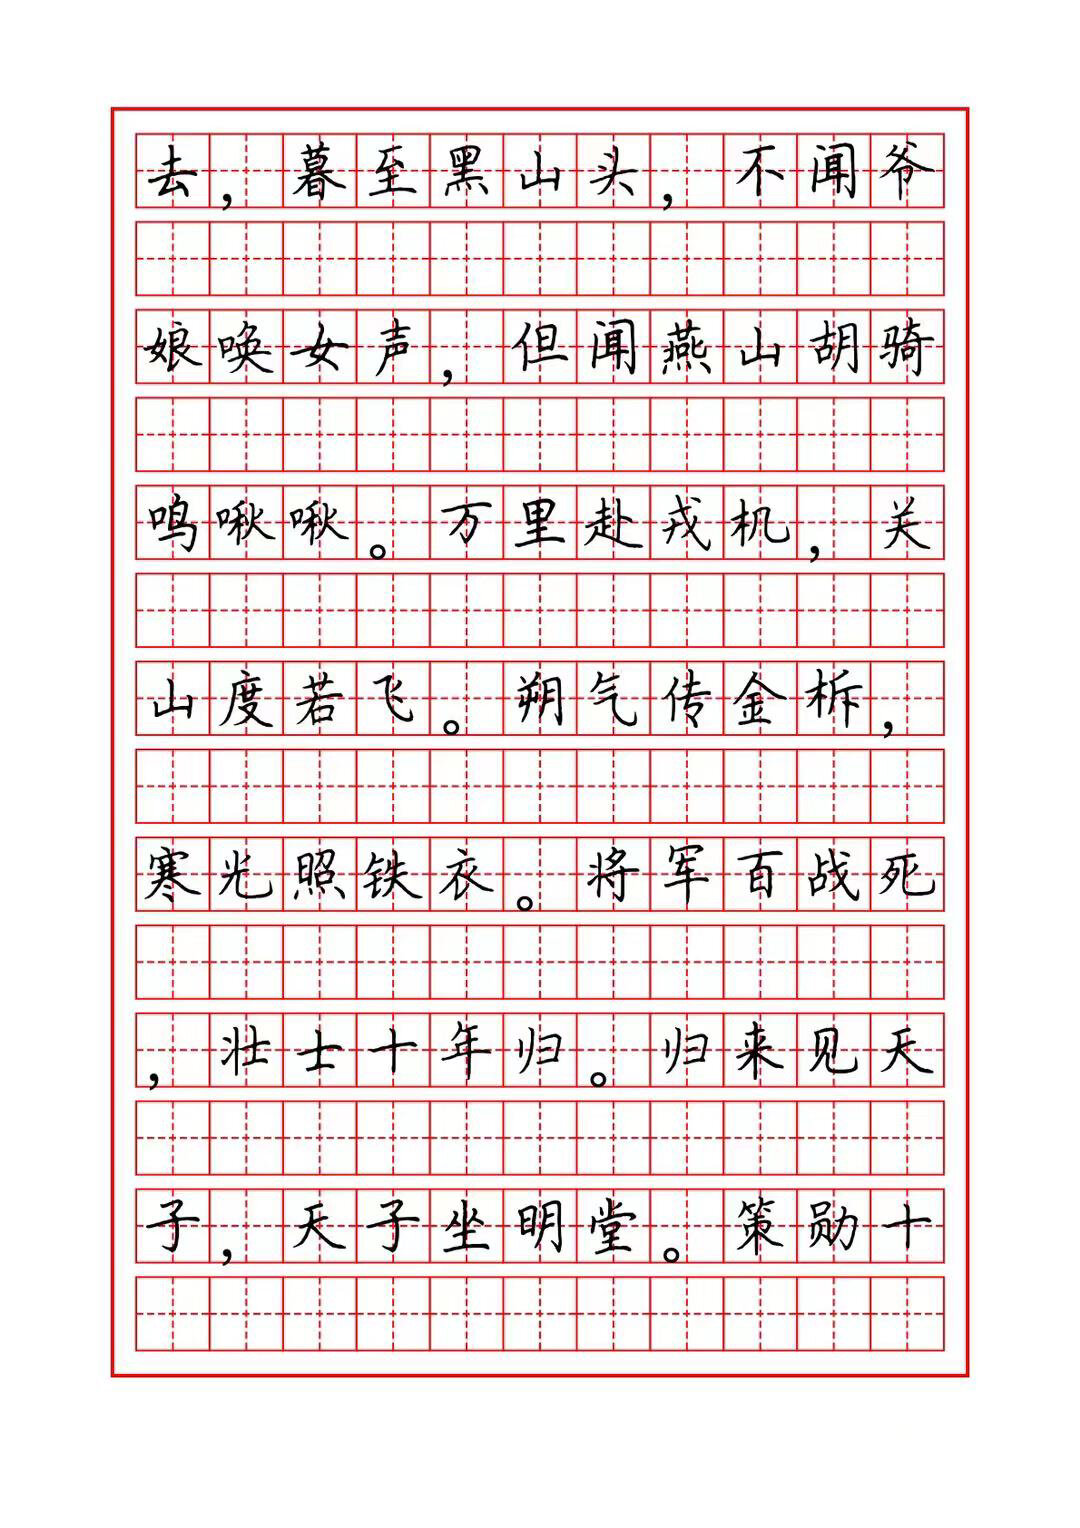 去，暮至黑山头，不闻爷
娘唤女声，但闻燕山胡骑
鸣啾啾。万里赴戎机，关
山度若飞。朔气传金柝，
寒光照铁衣。将军百战死
，壮士十年归。归来见天
子，天子坐明堂。策勋十